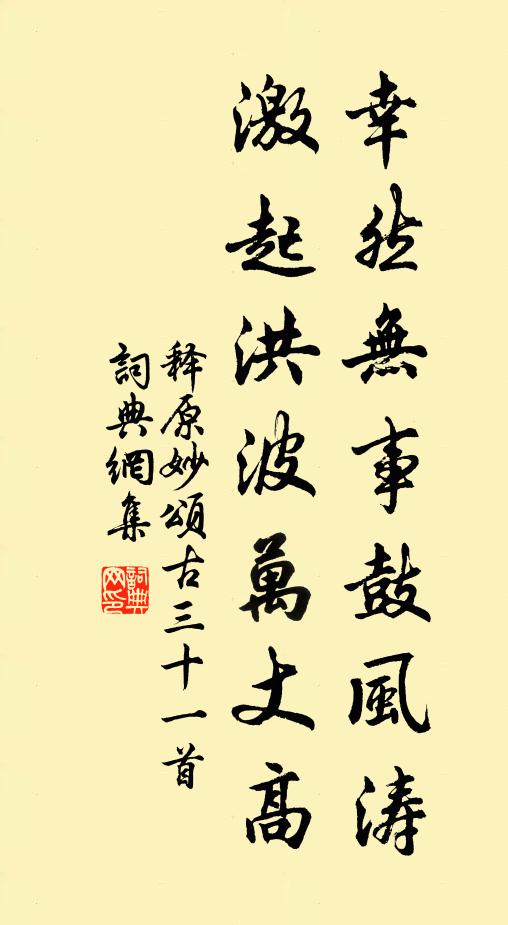 幸然無事鼓風濤
激起洪波萬丈高
释原妙頌古三十一首
詞典網集
詞典网印